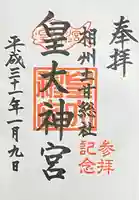 奉拝
相州土甘総社
皇大神宮
平成三十一年一月九日
参拝
記念